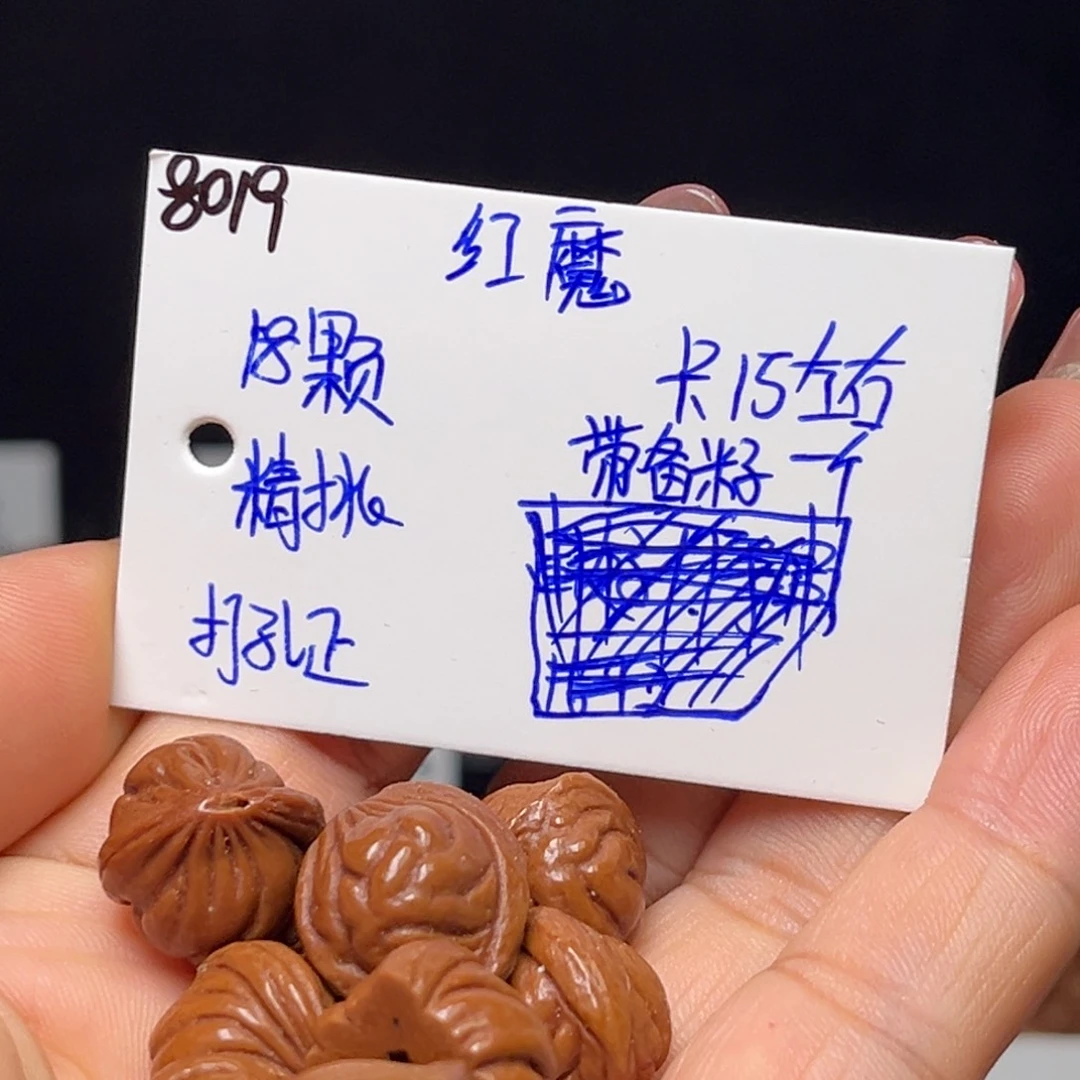 8019
红魔
18颗
卡15左右
精挑
带备籽一个
打孔证